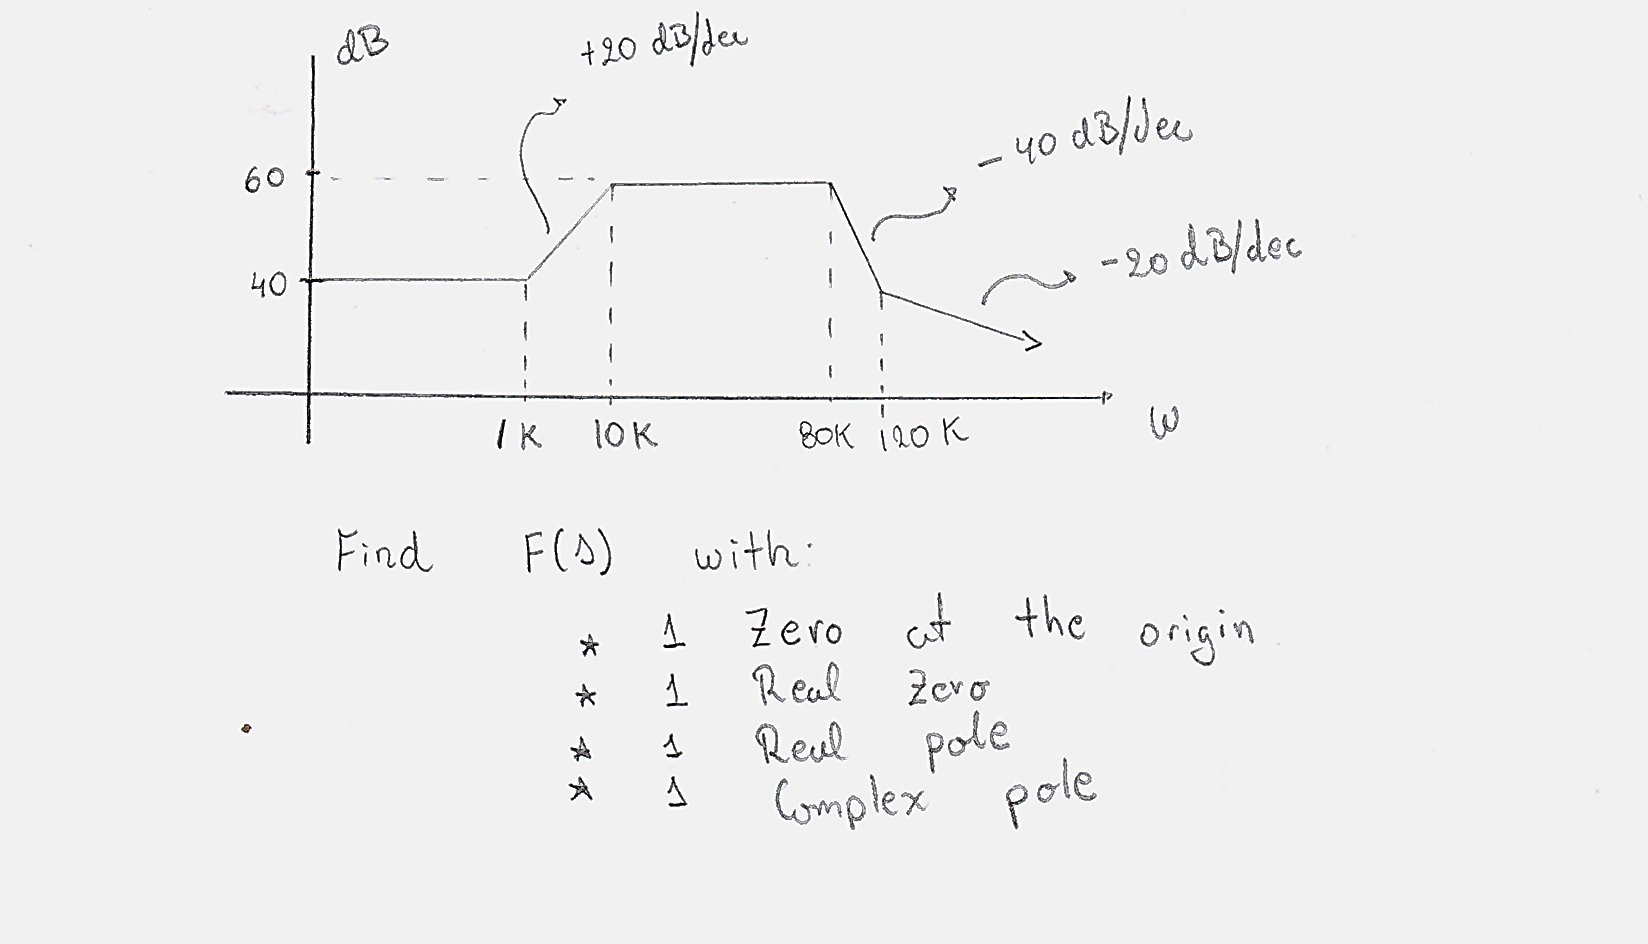 dB
+20 dB/dec
-40 dB/dec
60
-20 dB/dec
40
1K 10K 80K 120K
W
Find F(s) with:
* 1 Zero at the origin
* 1 Real zero
* 1 Real pole
* 1 Complex pole